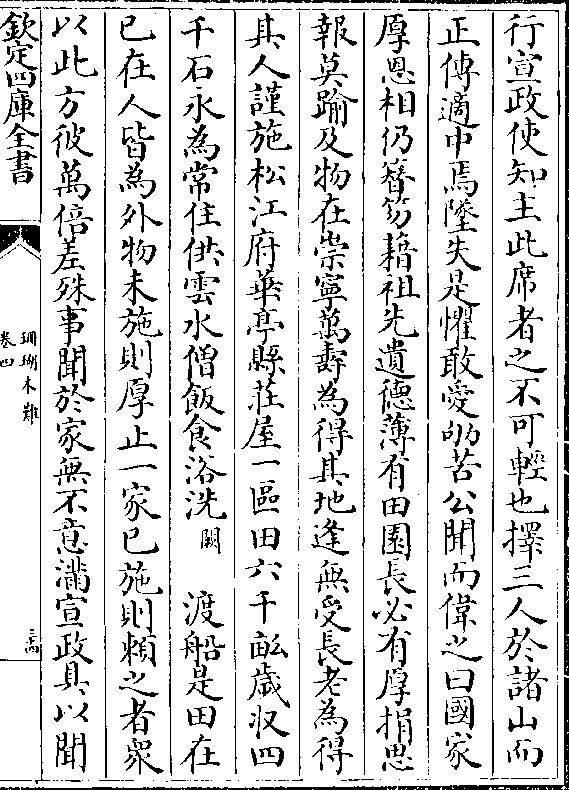 行宣政使知主此席者之不可輕也擇三人於諸山而
正傳適中焉墬失是懼敢愛劬苦公聞而偉之曰國家
厚恩相仍簪笏藉祖先遺德薄有田園長必有厚捐思
報莫踰及物在崇寧萬壽為得其地逢無受長老為得
其人謹施松江府華亭縣莊屋一區田六千畝歲收四
千石永為常住供雲水僧飯食浴洗闕渡船是田在
已在人皆為外物未施則厚止一家已施則賴之者衆
以此方彼萬倍差殊事聞於家無不意滿宣政具以聞
欽定四庫全書
珊瑚木難
卷四
三高